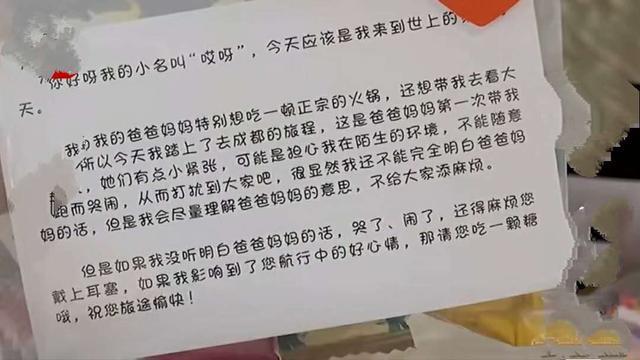 你好呀我的小名叫“哎呀”，今天应该是我来到世上的
天。
我的爸爸妈妈特别想吃一顿正宗的火锅，还想带我去看大
所以今天我踏上了去成都的旅程，这是爸爸妈妈第一次带我
，她们有点小紧张，可能是担心我在陌生的环境，不能随意
跑而哭闹，从而打扰到大家吧，很显然我还不能完全明白爸爸妈
妈的话，但是我会尽量理解爸爸妈妈的意思，不给大家添麻烦。
但是如果我没听明白爸爸妈妈的话，哭了、闹了，还得麻烦您
戴上耳塞，如果我影响到了您航行中的好心情，那请您吃一颗糖
哦，祝您旅途愉快！